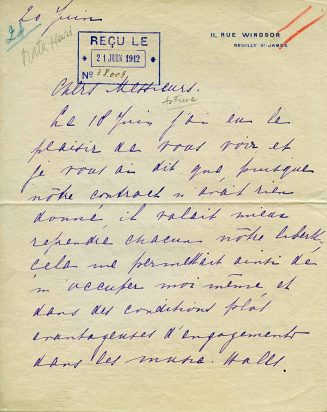 20 Juin
Mata Hari
11, RUE WINDSOR
NEUILLY ST-JAMES
REÇU LE
21 JUIN 1912
Nº
Chers Messieurs.
Astruc
Le 18 Juin j'ai eu le
plaisir de vous voir et
je vous ai dit que, puisque
nôtre contract n'avait rien
donné, il valait mieux
reprendre chacun nôtre liberté.
cela me permettait ainsi de
m'occuper moi même et
dans des conditions plus
avantageuses d'engagements
dans les music-Halls.